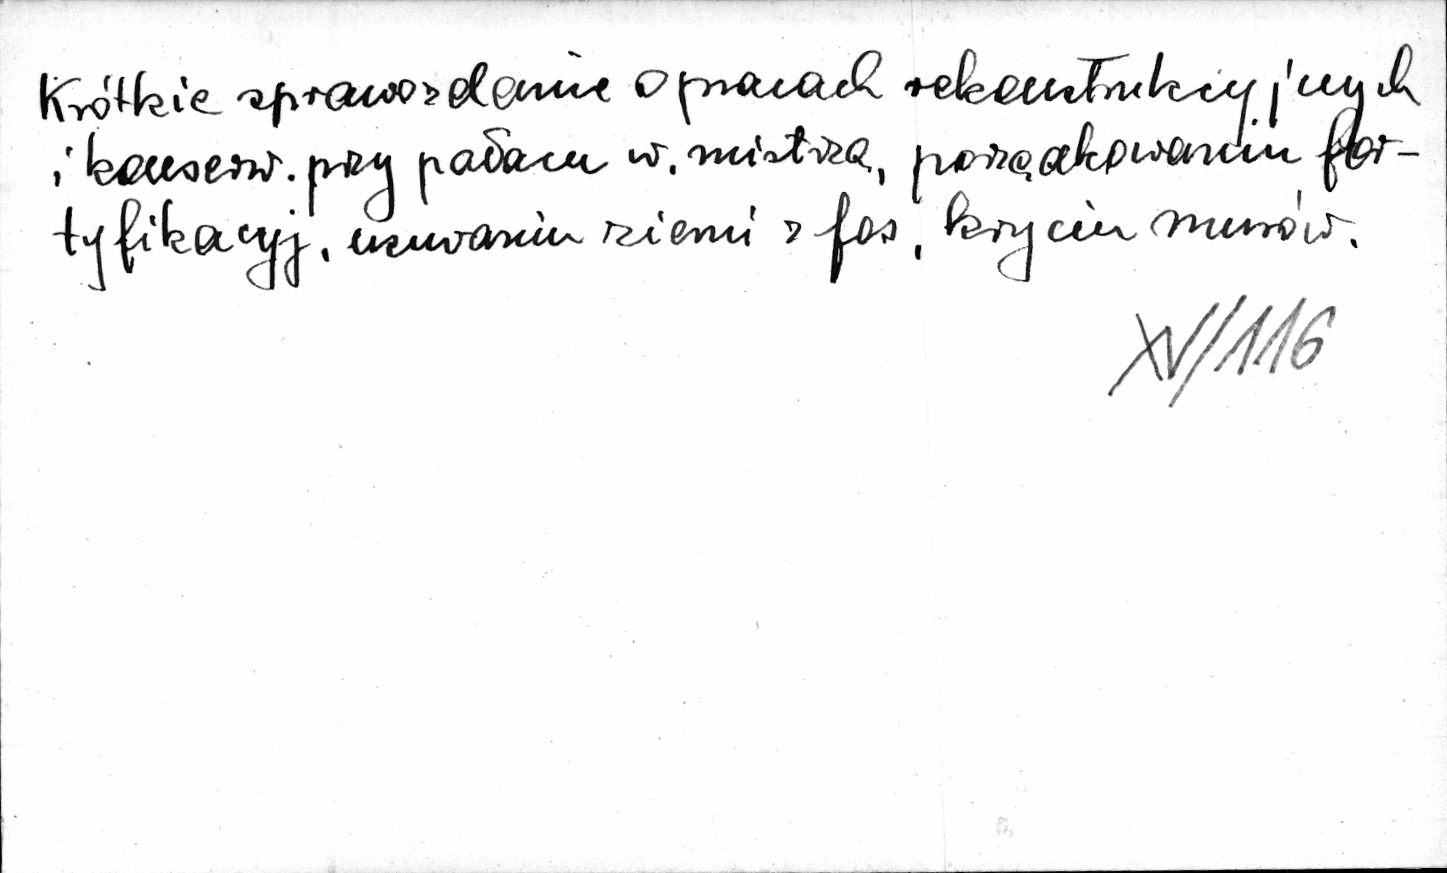 Krótkie sprawozdanie o pracach rekonstrukcyjnych
i konserw. przy pałacu w. mistrza, porządkowaniu for-
tyfikacyj, usuwaniu ziemi z fos, kryciu murów.
XV/116